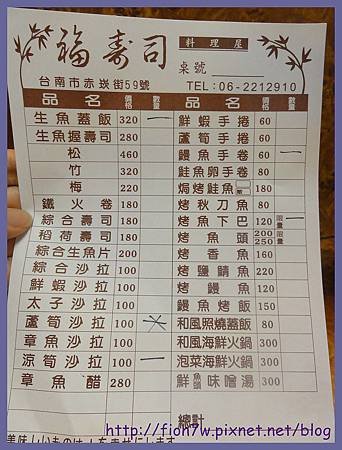 福壽司 料理屋
桌號
台南市赤崁街59號 TEL:06-2212910
品名 價格 數量 品名 價格 數量
生魚蓋飯 320 一 鮮蝦手捲 60
生魚握壽司 280 蘆筍手捲 60
松 460 鰻魚手卷 60 一
竹 320 鮭魚卵手卷 80
梅 220 焗烤鮭魚 180
鐵火卷 180 烤秋刀魚 80
綜合壽司 180 烤魚下巴 120 限量 一
稻荷壽司 180 烤魚頭 200 250 限量
綜合生魚片 200 烤香魚 160
綜合沙拉 100 烤鹽鯖魚 220
鮮蝦沙拉 100 烤鰻魚 220
太子沙拉 100 鰻魚烤飯 150
蘆筍沙拉 100 和風照燒蓋飯 80
章魚沙拉 100 和風海鮮火鍋 300
涼筍沙拉 100 一 泡菜海鮮火鍋 300
章魚醋 280 鮮魚頭味噌湯 300
總計
美味しいものは人を幸せにします
http://fion7w.pixnet.net/blog